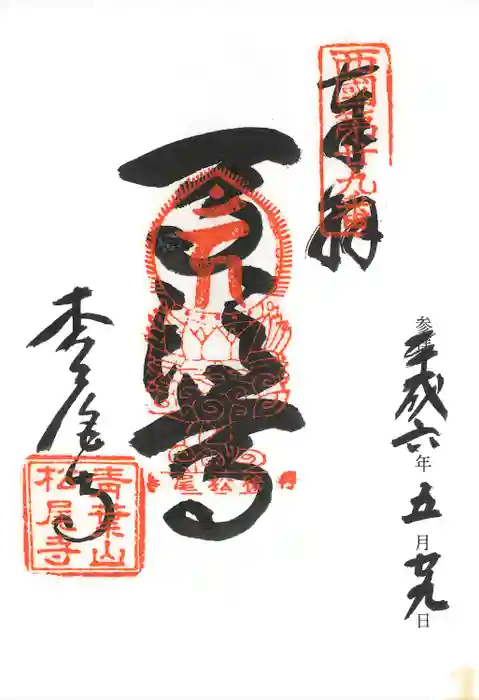 奉拝
西國第廿九番
参拝平成六年五月廿九日
馬頭尊
松尾寺
青葉山
松尾寺